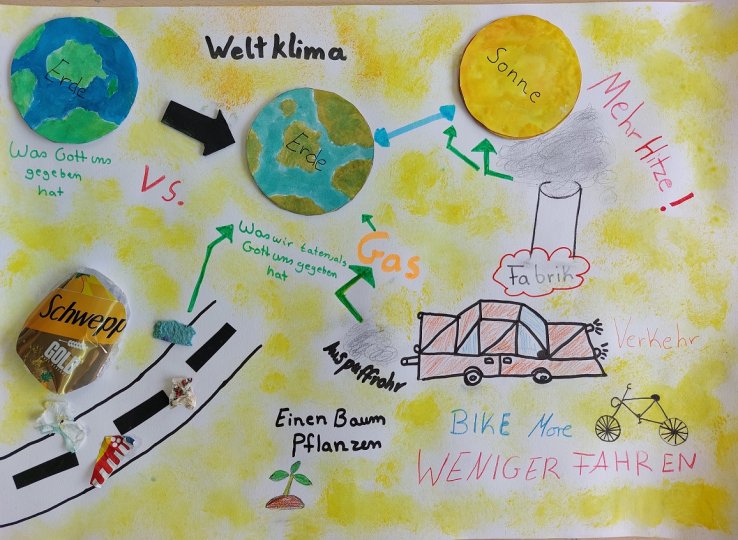 Weltklima
Erde
Was Gott uns
gegeben
hat
vs.
Erde
Sonne
Mehr Hitze!
Was wir taten als
Gott uns gegeben
hat
Gas
Fabrik
Schwepp
GOLD
Auspuffrohr
Verkehr
Einen Baum
Pflanzen
BIKE More
WENIGER FAHREN